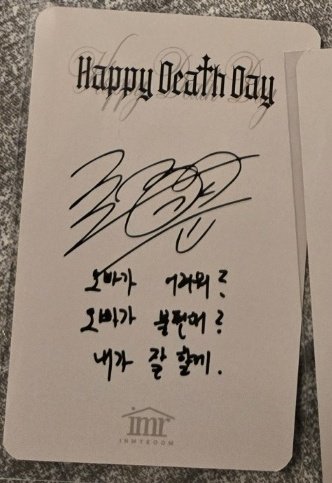 Happy Death Day
오빠가 어려워?
오빠가 불편해?
내가 잘 할게.
imr
INMYROOM